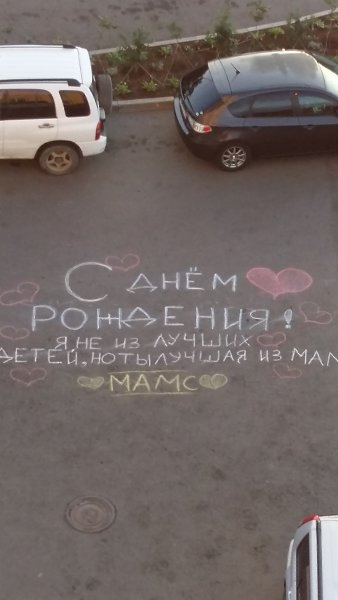 С ДНЁМ
РОЖДЕНИЯ!
Я, НЕ ИЗ ЛУЧШИХ
ДЕТЕЙ, НО ТЫ ЛУЧШАЯ ИЗ МАМ
МАМС